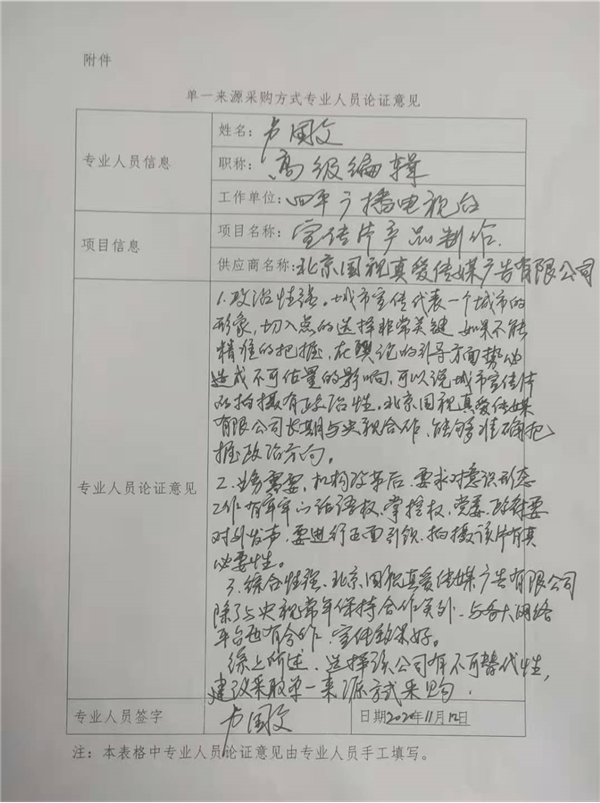 附件
单一来源采购方式专业人员论证意见
专业人员信息
姓名：卢国文
职称：高级编辑
工作单位：四平广播电视台
项目信息
项目名称：宣传片产品制作.
供应商名称：北京国视真爱传媒广告有限公司
专业人员论证意见
1.政治性强。城市宣传代表一个城市的
形象，切入点的选择非常关键，如果不能
精准的把握，在舆论的引导方面势必
造成不可估量的影响，可以说城市宣传片
的拍摄有政治性。北京国视真爱传媒
有限公司长期与央视合作，能够准确把
握政治方向。
2.业务需要，机构改革后，要求对意识形态
工作有牢牢的话语权、掌控权，党委、政府要
对外发声，要进行正面引领，拍摄该片有其
必要性。
3.综合性强，北京国视真爱传媒广告有限公司
除了与央视常年保持合作关外，与各大网络
平台也有合作，宣传效果好。
综上所述，选择该公司有不可替代性，
建议采取单一来源方式采购.
专业人员签字
卢国文
日期2020年11月12日
注：本表格中专业人员论证意见由专业人员手工填写。